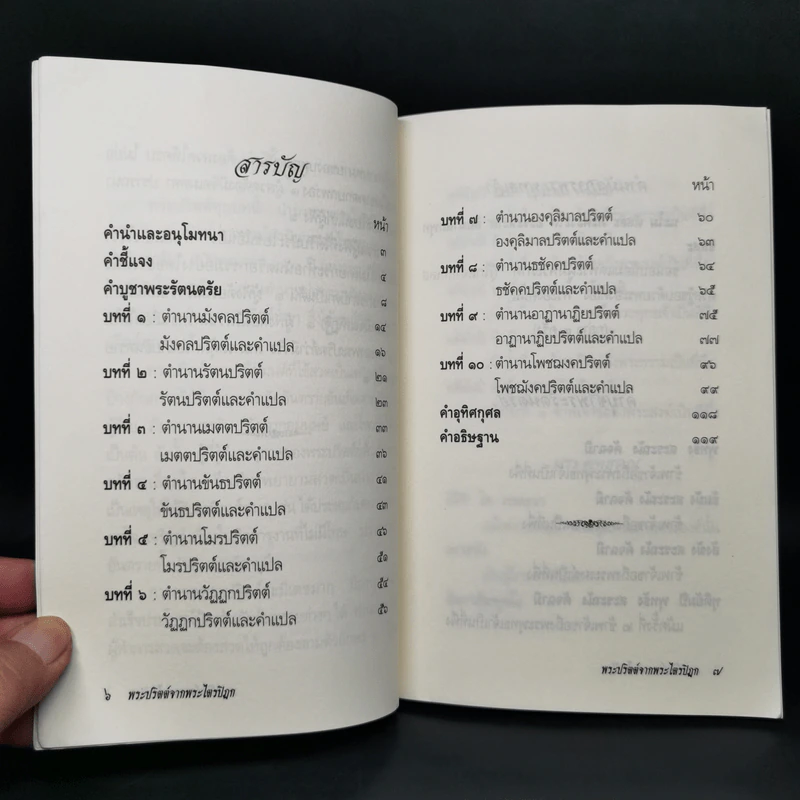 สารบัญ
หน้า
คำนำและอนุโมทนา ๓
คำชี้แจง ๔
คำบูชาพระรัตนตรัย ๘
บทที่ ๑ : ตำนานมังคลปริตต์ ๑๔
มังคลปริตต์และคำแปล ๑๖
บทที่ ๒ : ตำนานรัตนปริตต์ ๒๑
รัตนปริตต์และคำแปล ๒๓
บทที่ ๓ : ตำนานเมตตปริตต์ ๓๓
เมตตปริตต์และคำแปล ๓๖
บทที่ ๔ : ตำนานขันธปริตต์ ๔๑
ขันธปริตต์และคำแปล ๔๓
บทที่ ๕ : ตำนานโมรปริตต์ ๔๖
โมรปริตต์และคำแปล ๕๑
บทที่ ๖ : ตำนานวัฏฏกปริตต์ ๕๔
วัฏฏกปริตต์และคำแปล ๕๖
๖ พระปริตต์จากพระไตรปิฎก
หน้า
บทที่ ๗ : ตำนานองคุลิมาลปริตต์ ๖๐
องคุลิมาลปริตต์และคำแปล ๖๓
บทที่ ๘ : ตำนานธชัคคปริตต์ ๖๔
ธชัคคปริตต์และคำแปล ๖๕
บทที่ ๙ : ตำนานอาฏานาฏิยปริตต์ ๗๕
อาฏานาฏิยปริตต์และคำแปล ๗๗
บทที่ ๑๐ : ตำนานโพชฌงคปริตต์ ๙๖
โพชฌังคปริตต์และคำแปล ๙๙
คำอุทิศกุศล ๑๑๘
คำอธิษฐาน ๑๑๙
พระปริตต์จากพระไตรปิฎก ๗